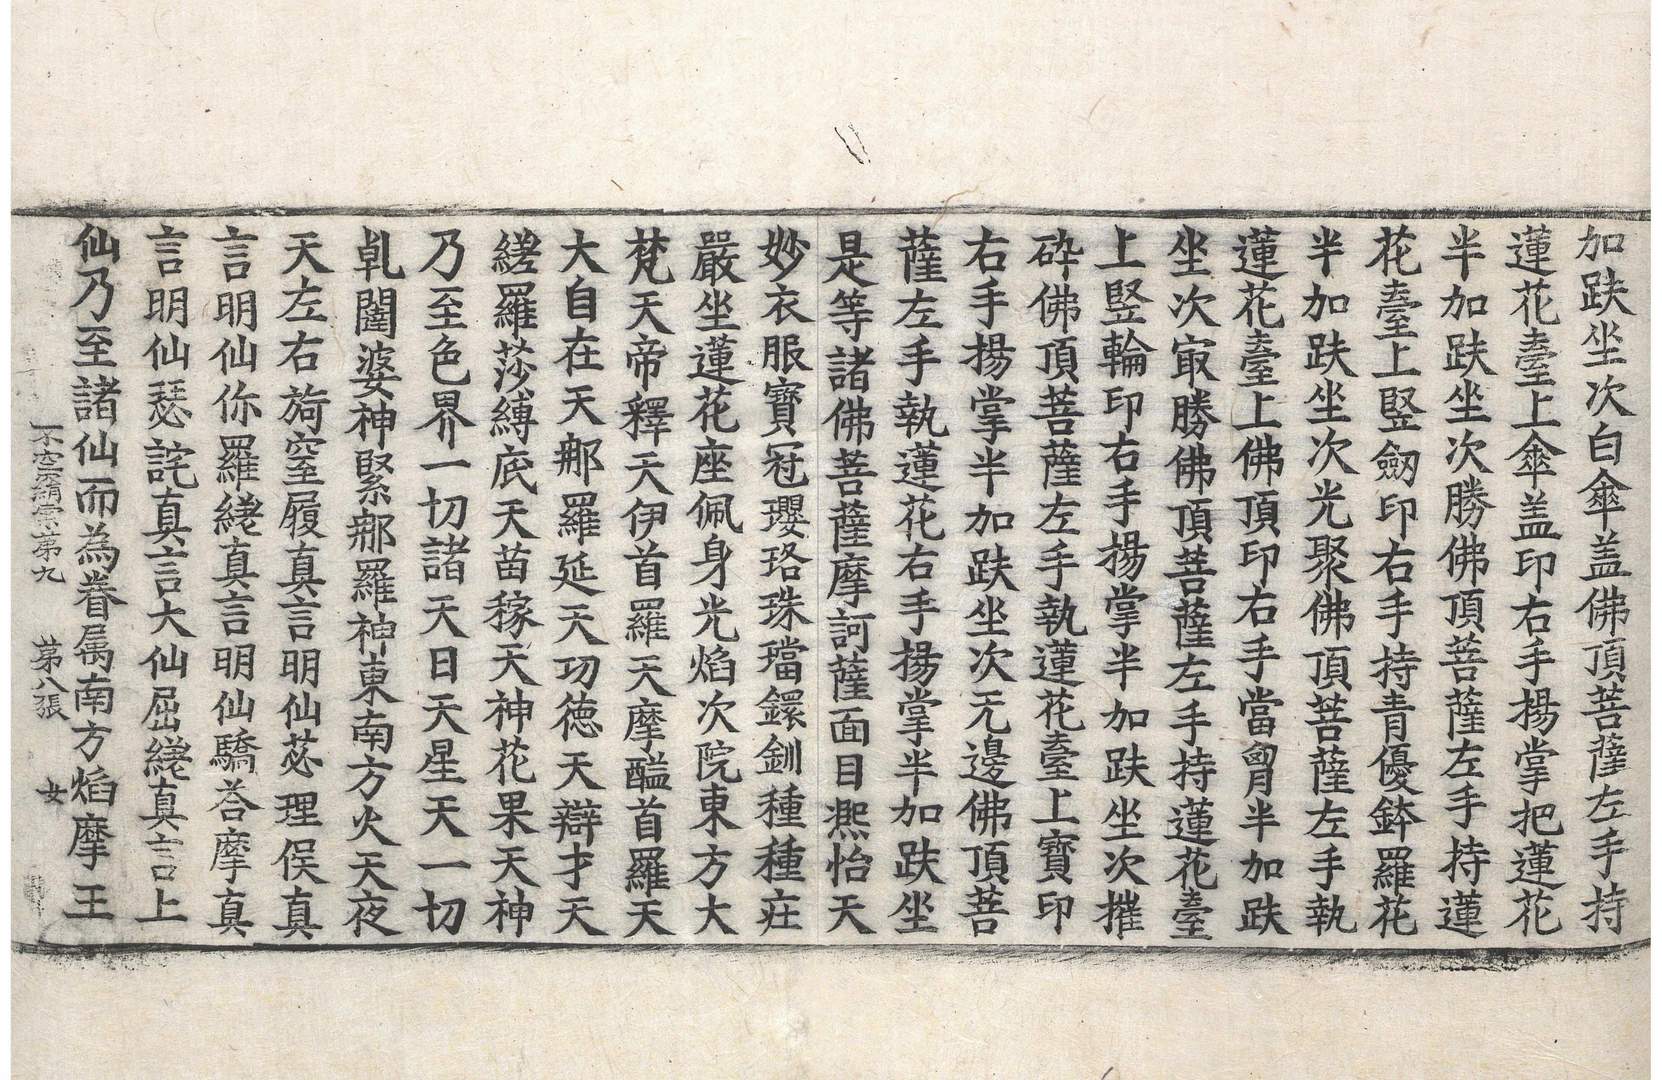 加趺坐次白傘盖佛頂菩薩左手持
蓮花臺上傘盖印右手揚掌把蓮花
半加趺坐次勝佛頂菩薩左手持蓮
花臺上竪劒印右手持青優鉢羅花
半加趺坐次光聚佛頂菩薩左手執
蓮花臺上佛頂印右手當胷半加趺
坐次㝡勝佛頂菩薩左手持蓮花臺
上竪輪印右手揚掌半加趺坐次摧
碎佛頂菩薩左手執蓮花臺上寶印
右手揚掌半加趺坐次无邊佛頂菩
薩左手執蓮花右手揚掌半加趺坐
是等諸佛菩薩摩訶薩面目熈怡天
妙衣服寶冠瓔珞珠璫鐶釧種種莊
嚴坐蓮花座佩身光焰次院東方大
梵天帝釋天伊首羅天摩醯首羅天
大自在天那羅延天功徳天辯才天
縒羅莎縛底天苗稼天神花果天神
乃至色界一切諸天日天星天一切
乹闥婆神緊那羅神東南方火天夜
天左右旖窒履真言明仙苾理俣真
言明仙你羅繞真言明仙驕荅摩真
言明仙瑟詫真言大仙屈繞真言上
仙乃至諸仙而為眷属南方焰摩王
不空羂索第九　第八張　女